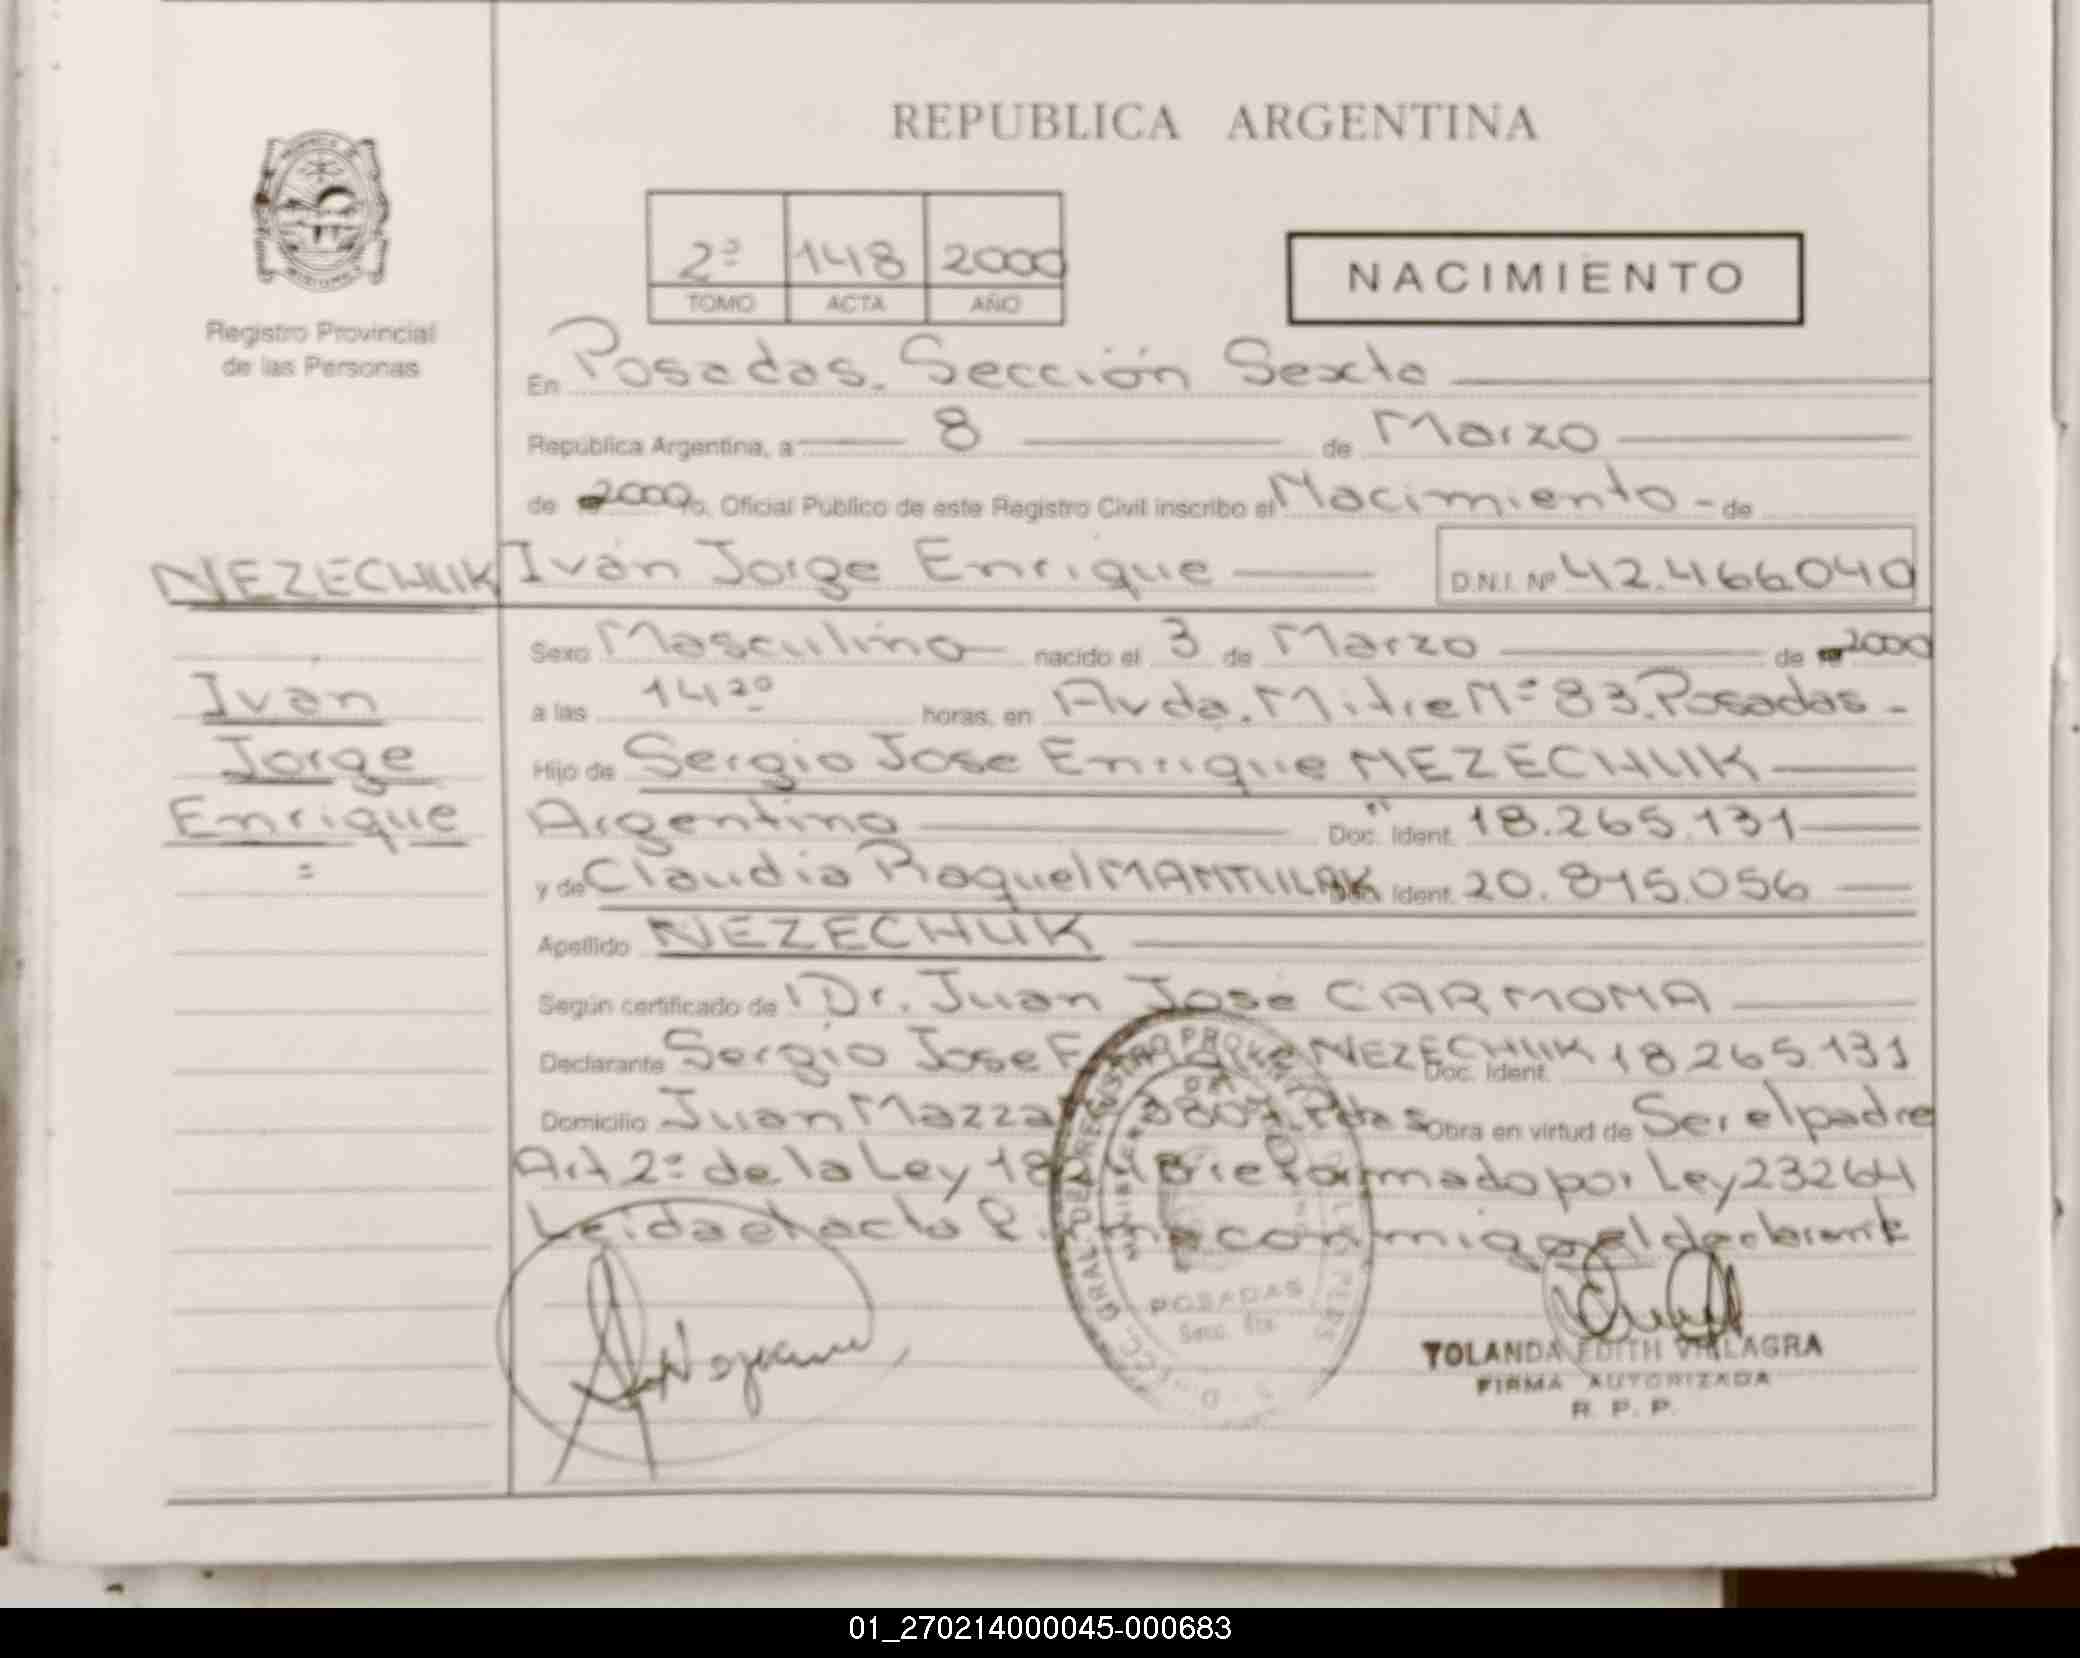 REPUBLICA ARGENTINA
2º 148 2000
TOMO ACTA AÑO
NACIMIENTO
Registro Provincial
de las Personas
En Posadas. Sección Sexta
República Argentina, a 8 de Marzo
de 2000 yo, Oficial Público de este Registro Civil inscribo el Nacimiento - de
NEZECHUK Iván Jorge Enrique D.N.I. Nº 42.466.040
Sexo Masculino nacido el 3 de Marzo de 2000
Iván
a las 14 20 horas, en Avda. Mitre Nº 83. Posadas -
Jorge
Hijo de Sergio Jose Enrique NEZECHUK
Enrique
Argentino Doc. Ident. 18.265.131
y de Claudia Raquel MANTULAK Doc. Ident. 20.815.056
Apellido NEZECHUK
Según certificado de Dr. Juan José CARMONA
Declarante Sergio Jose NEZECHUK Doc. Ident. 18.265.131
Domicilio Juan Obra en virtud de Ser el padre
Art 2º de la Ley reformado por Ley 23264
Leida el acta conmigo el declarante
POSADAS
Secc. 6ta
YOLANDA EDITH VILLAGRA
FIRMA AUTORIZADA
R. P. P.
01_270214000045-000683